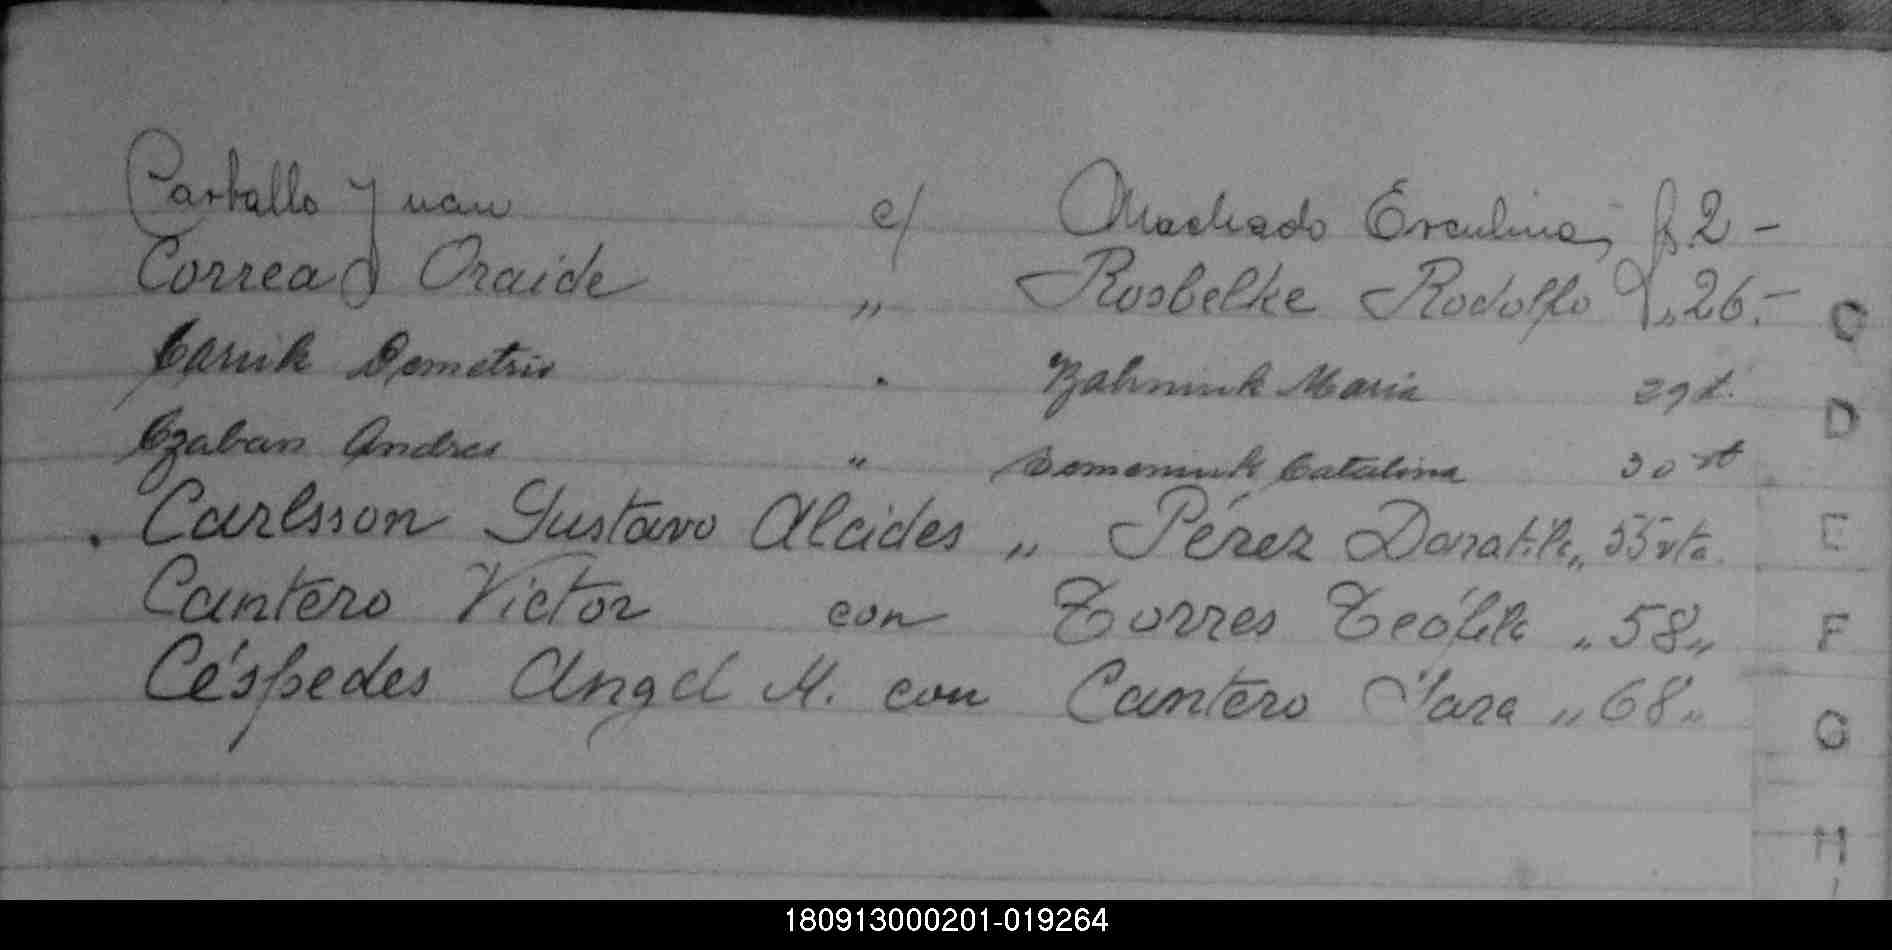 Carballo Juan c/ Machado Erculina, f 2 -
Correa Oraide " Rosbelke Rodolfo f, 26.-
Caruk Demetrio " María 29 v.
Czaban Andres " Semeniuk Catalina 30 vt
Carlsson Gustavo Alcides " Pérez Donatila " 55 vta
Cantero Victor con Torres Teófila " 58 "
Céspedes Angel M. con Cantero Sara " 68 "
C
D
E
F
G
H
180913000201-019264